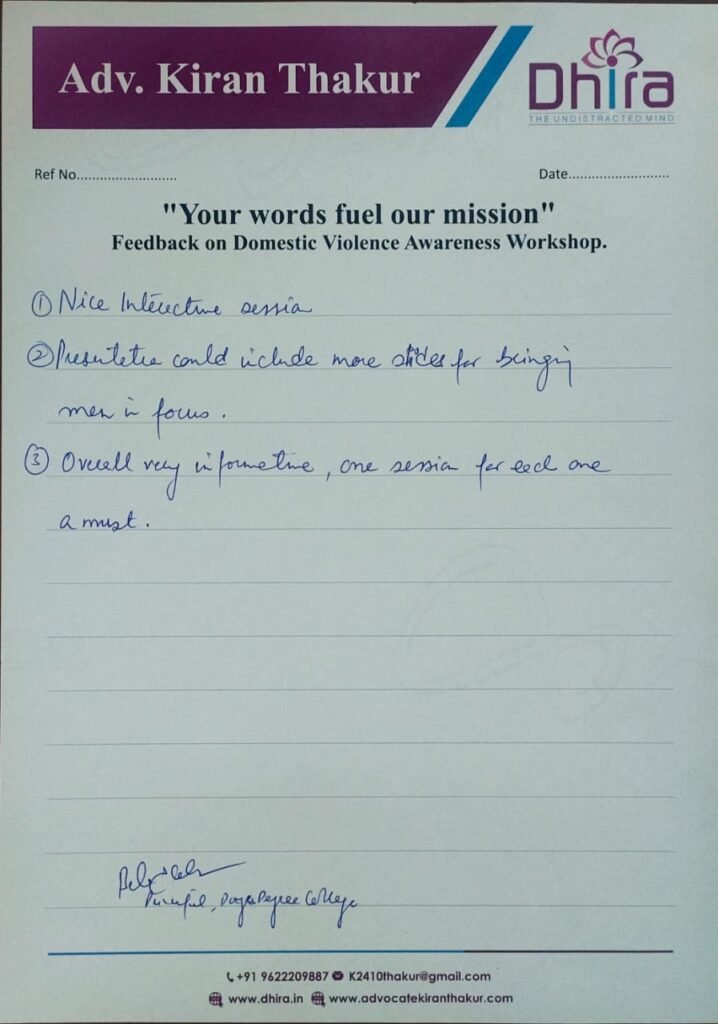 Adv. Kiran Thakur
Dhira
THE UNDISTRACTED MIND
Ref No..........................
Date..........................
"Your words fuel our mission"
Feedback on Domestic Violence Awareness Workshop.
① Nice Interective session
② Presentetia could include more slides for bringing
men in focus.
③ Overall very informetive, one session for each one
a must.
Principal, Dogra Degree College
+91 9622209887 K2410thakur@gmail.com
www.dhira.in www.advocatekiranthakur.com